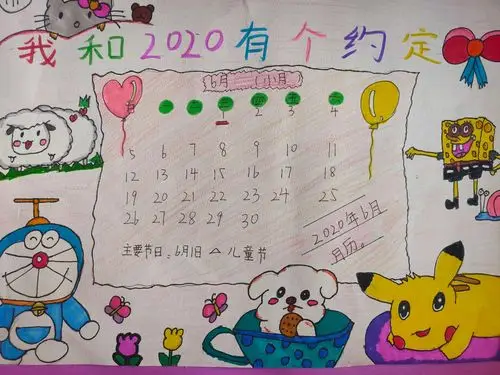 我和2020有个约定
6月 (小月)
日 一 二 三 四 五 六
1 2 3 4
5 6 7 8 9 10 11
12 13 14 15 16 17 18
19 20 21 22 23 24 25
26 27 28 29 30
2020年6月
月历。
主要节日:6月1日 △ 儿童节